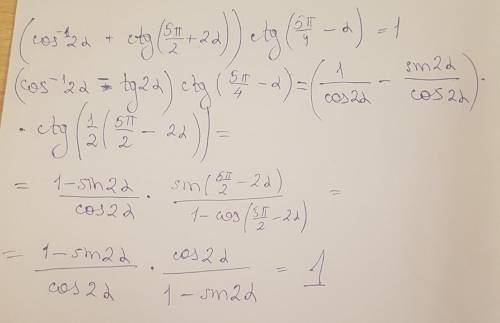 (cos⁻¹2α + ctg(5π/2 + 2α)) ctg(5π/4 − α) = 1
(cos⁻¹2α − tg2α) ctg(5π/4 − α) = (1/cos2α − sin2α/cos2α) ·
· ctg(1/2(5π/2 − 2α)) =
= (1−sin2α)/cos2α · sin(5π/2 − 2α)/(1−cos(5π/2 − 2α)) =
= (1−sin2α)/cos2α · cos2α/(1−sin2α) = 1